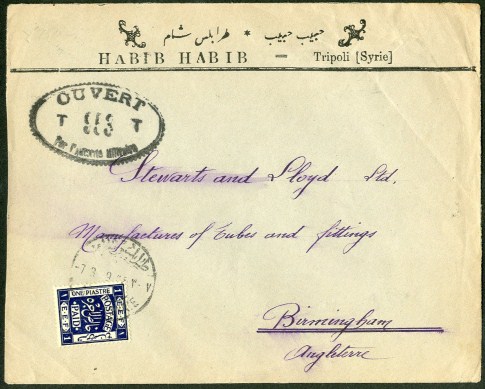 حبيب حبيب * طرابلس شام
HABIB HABIB — Tripoli [Syrie]
OUVERT
T T
Par l'Autorité Militaire
Stewarts and Lloyd Ltd.
Manufactures of Tubes and fittings
Birmingham
Angleterre
ONE PIASTRE
POSTAGE
PAID
E.E.F.
1 1